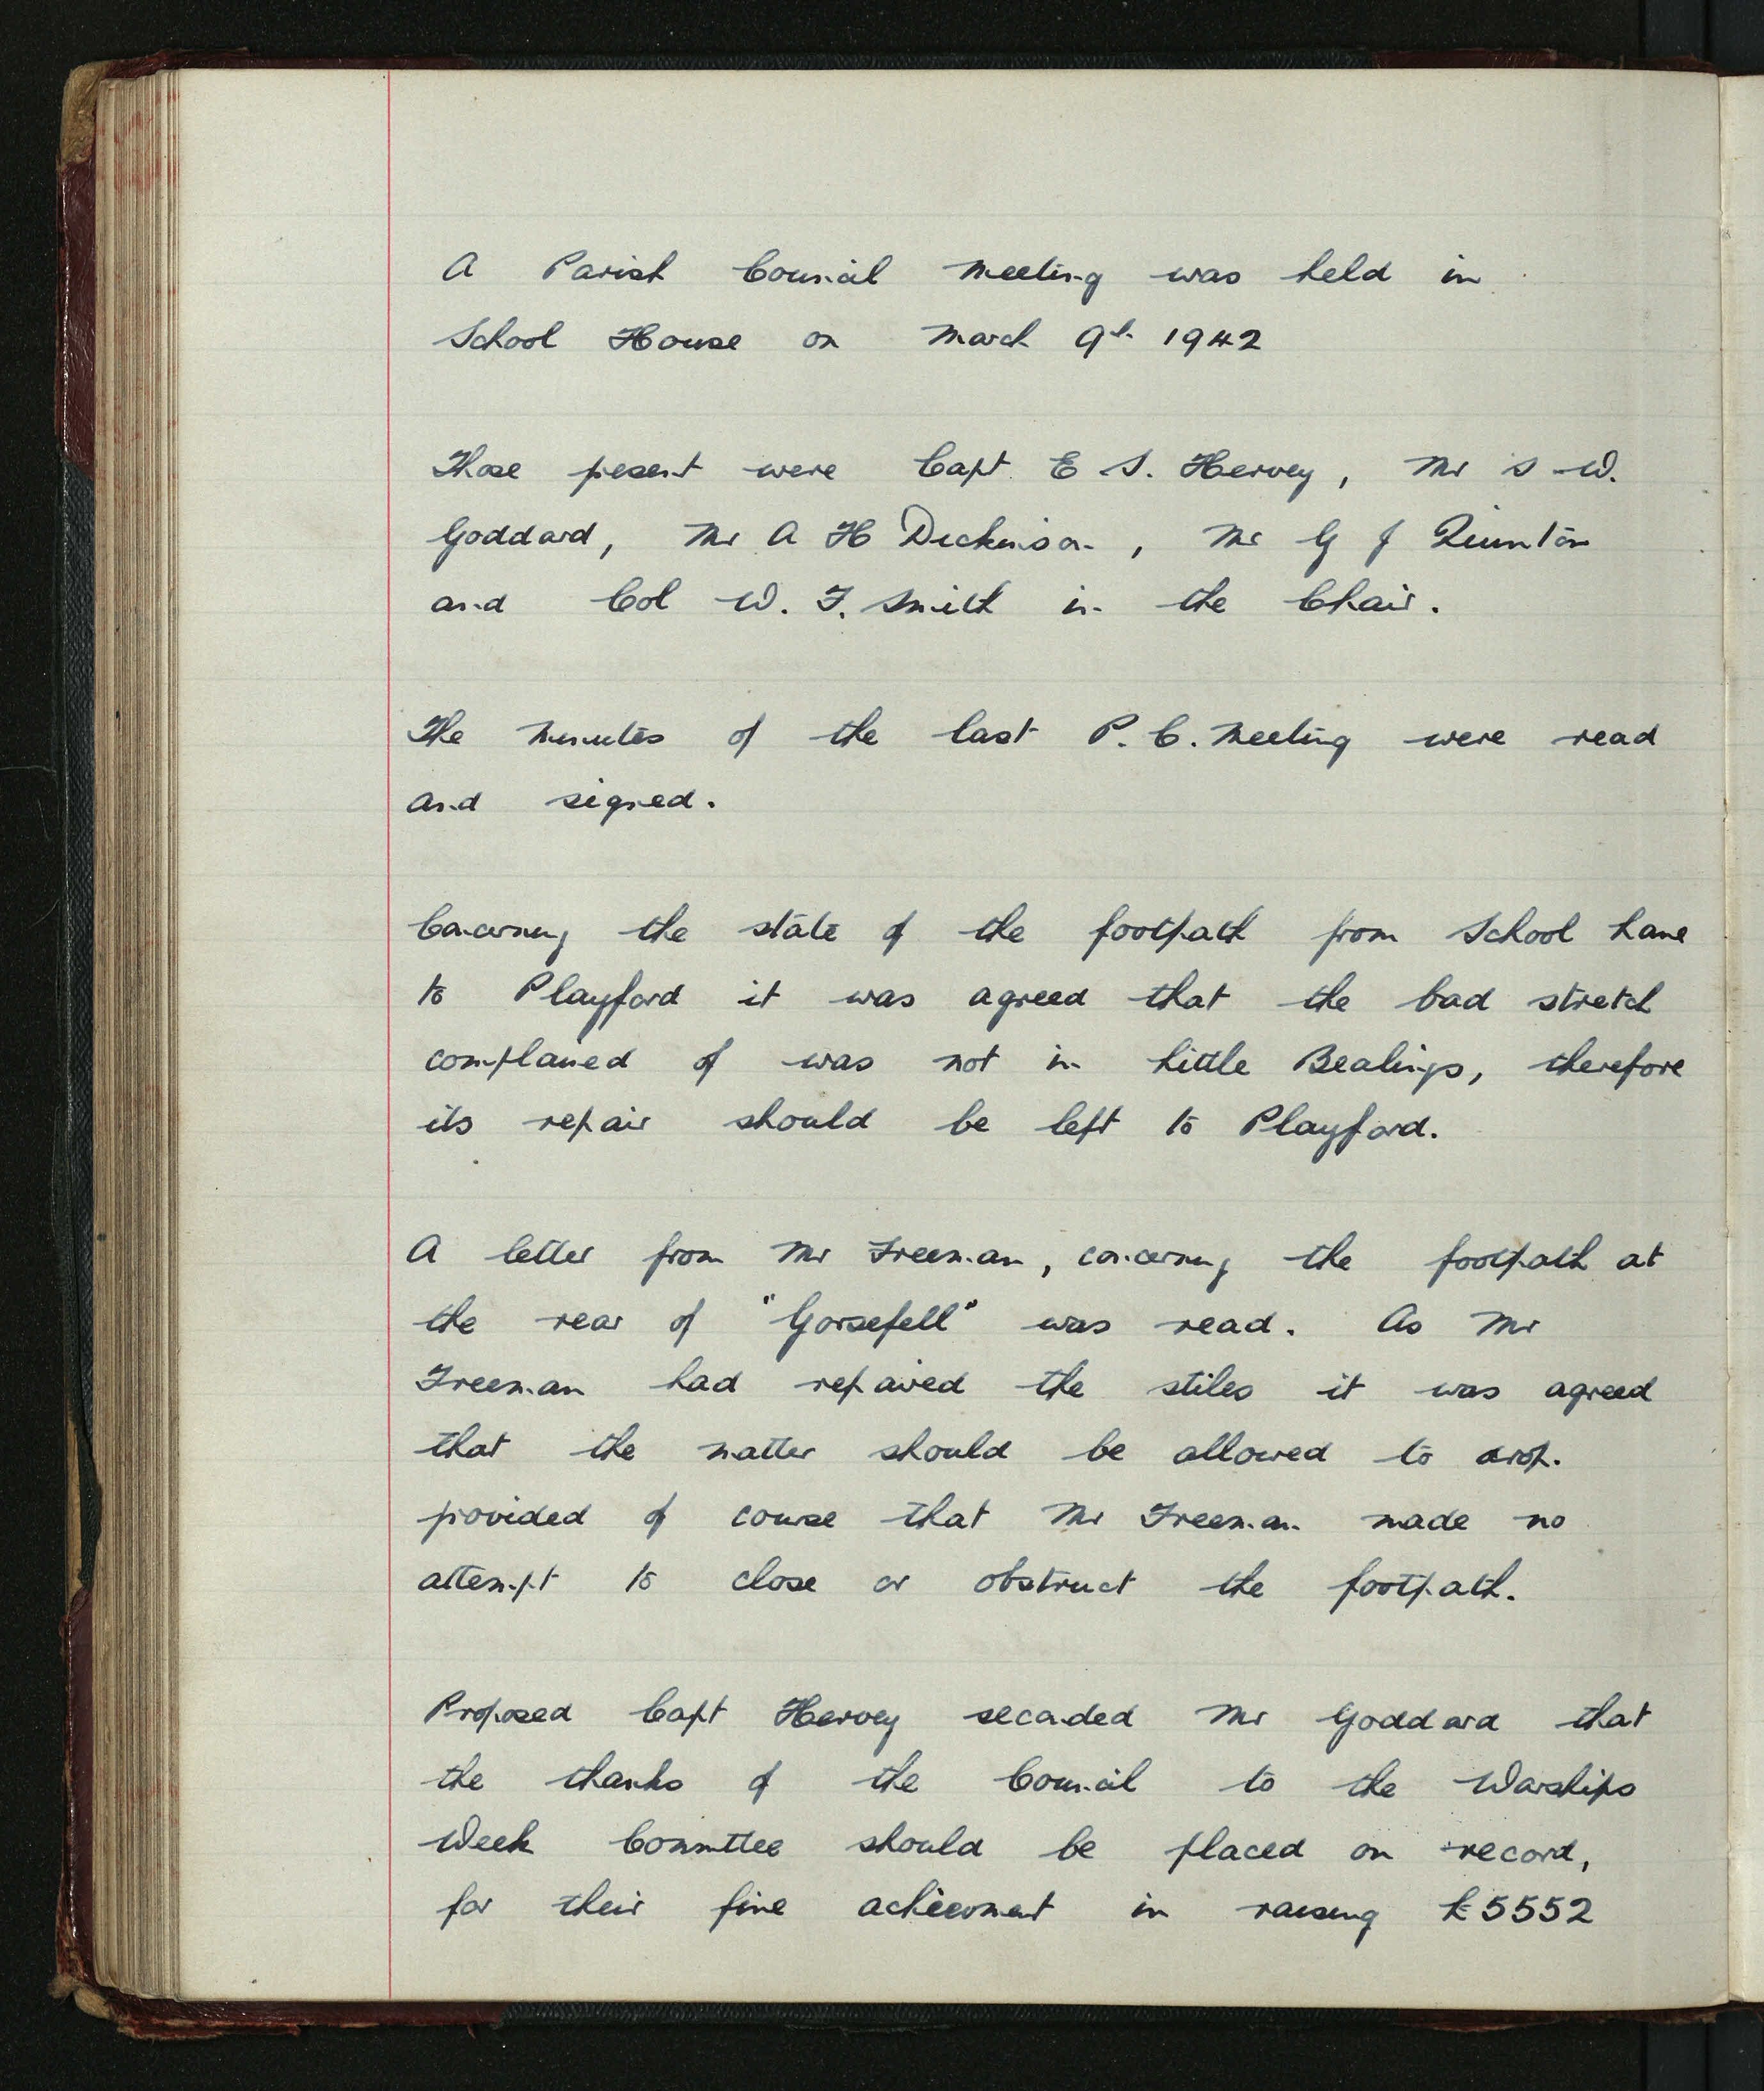 A Parish Council Meeting was held in
School House on March 9th 1942
Those present were Capt. E S. Hervey, Mr S W.
Goddard, Mr A H Dickinson, Mr G J Quinton
and Col W. F. Smith in the Chair.
The Minutes of the last P. C. Meeting were read
and signed.
Concerning the state of the footpath from School Lane
to Playford it was agreed that the bad stretch
complained of was not in Little Bealings, therefore
its repair should be left to Playford.
A letter from Mr Freeman, concerning the footpath at
the rear of "Gorsefell" was read. As Mr
Freeman had repaired the stiles it was agreed
that the matter should be allowed to drop.
provided of course that Mr Freeman made no
attempt to close or obstruct the footpath.
Proposed Capt Hervey seconded Mr Goddard that
the thanks of the Council to the Warships
Week Committee should be placed on record,
for their fine achievment in raising £5552